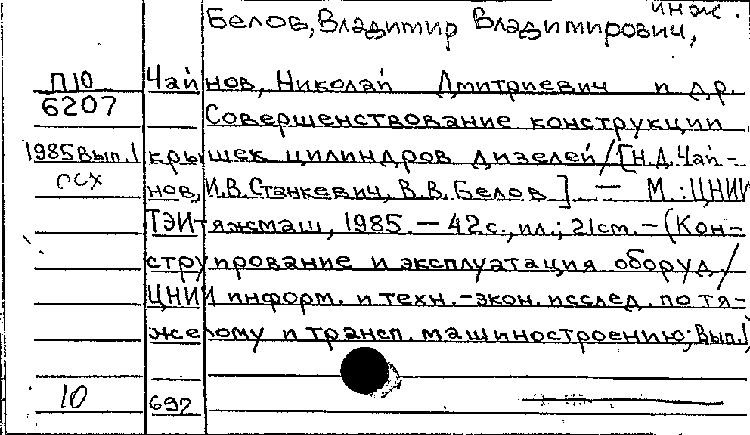 инж.
Белов, Владимир Владимирович,
П10 Чайнов, Николай Дмитриевич и др.
6207 Совершенствование конструкции
1985 Вып.1 крышек цилиндров дизелей / [Н.Д. Чай-
нов, И.В. Станкевич, В.В. Белов]. — М.: ЦНИИ
ТЭИтяжмаш, 1985. — 42с., ил.; 21см. — (Кон-
струирование и эксплуатация оборуд. /
ЦНИИ информ. и техн.-экон. исслед. по тя-
желому и трансп. машиностроению; Вып.1)
10 692